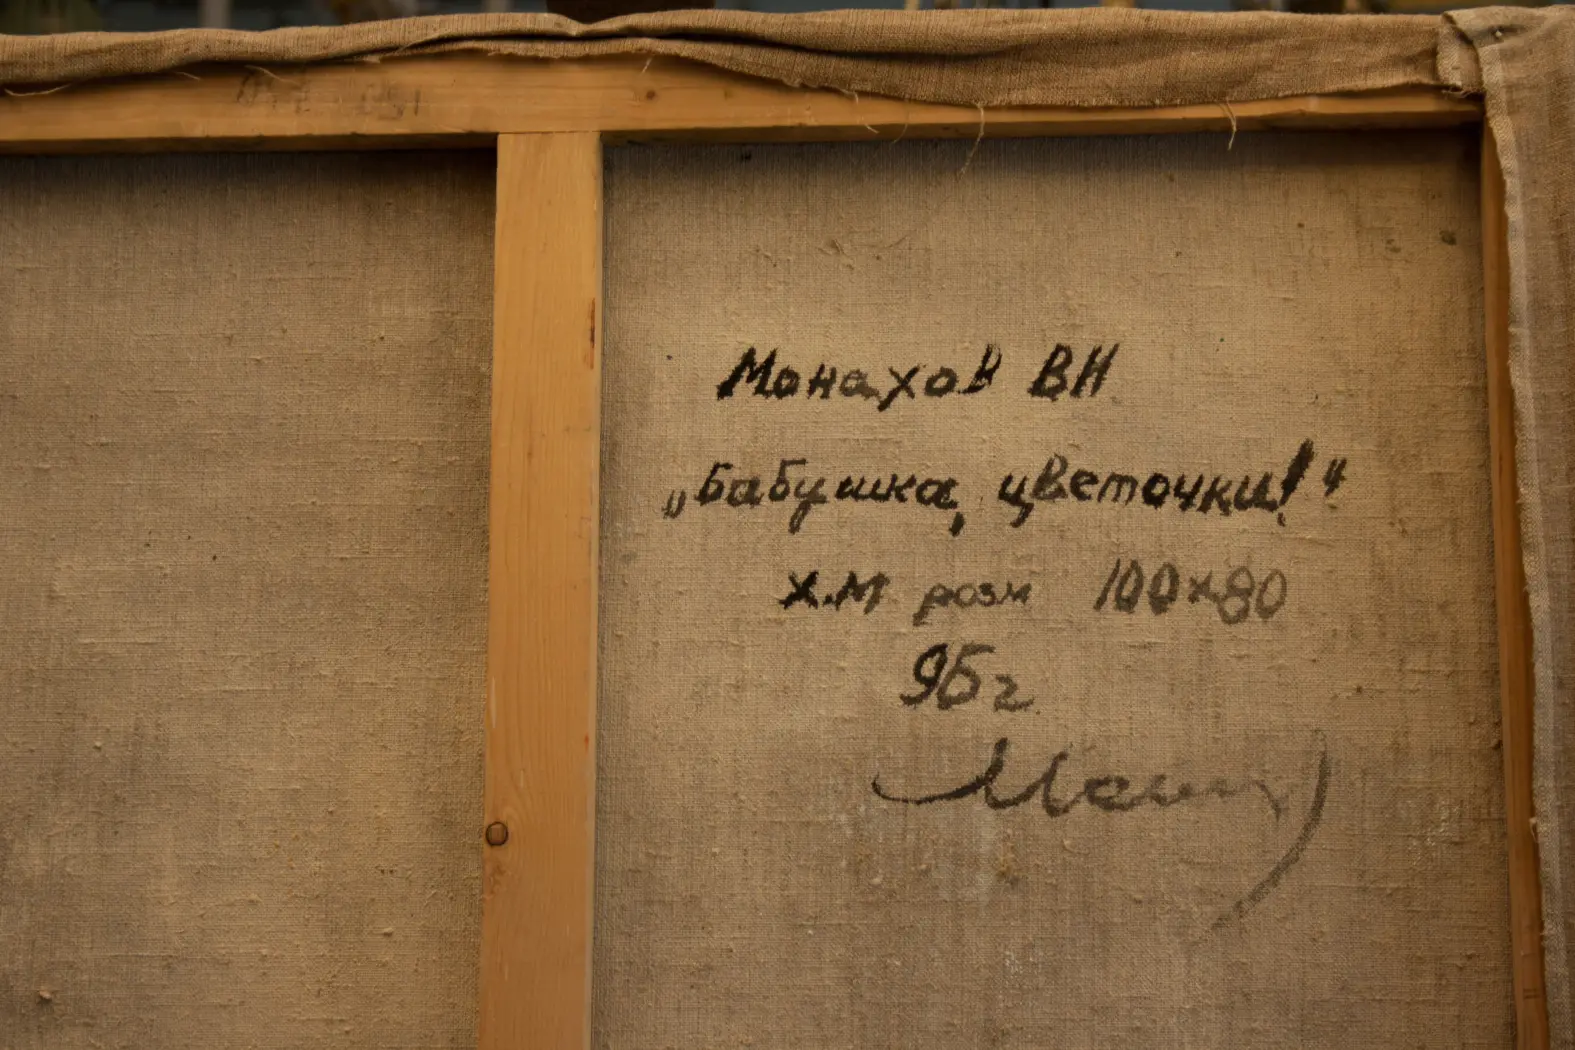 Монахов ВН
„Бабушка, цветочки!“
х.м розм 100х80
95г